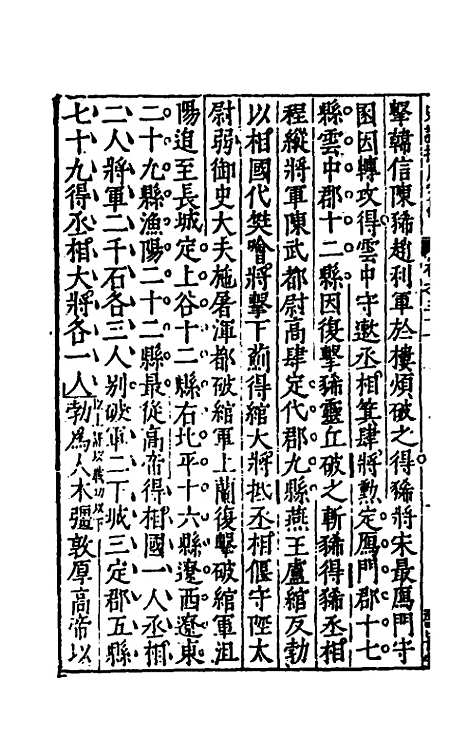 擊韓信陳豨趙利軍於樓煩破之得豨將宋最鴈門守
圂因轉攻得雲中守遬丞相箕肆將勲定鴈門郡十七
縣雲中郡十二縣因復擊豨靈丘破之斬豨得豨丞相
程縱將軍陳武都尉高肆定代郡九縣燕王盧綰反勃
以相國代樊噲將擊下薊得綰大將抵丞相偃守陘太
尉弱御史大夫施屠渾都破綰軍上蘭復擊破綰軍沮
陽追至長城定上谷十二縣右北平十六縣遼西遼東
二十九縣漁陽二十二縣最從高帝得相國一人丞相
二人將軍二千石各三人別破軍二下城三定郡五縣
七十九得丞相大將各一人以上詳次戰功以下勃爲人木彊敦厚高帝以